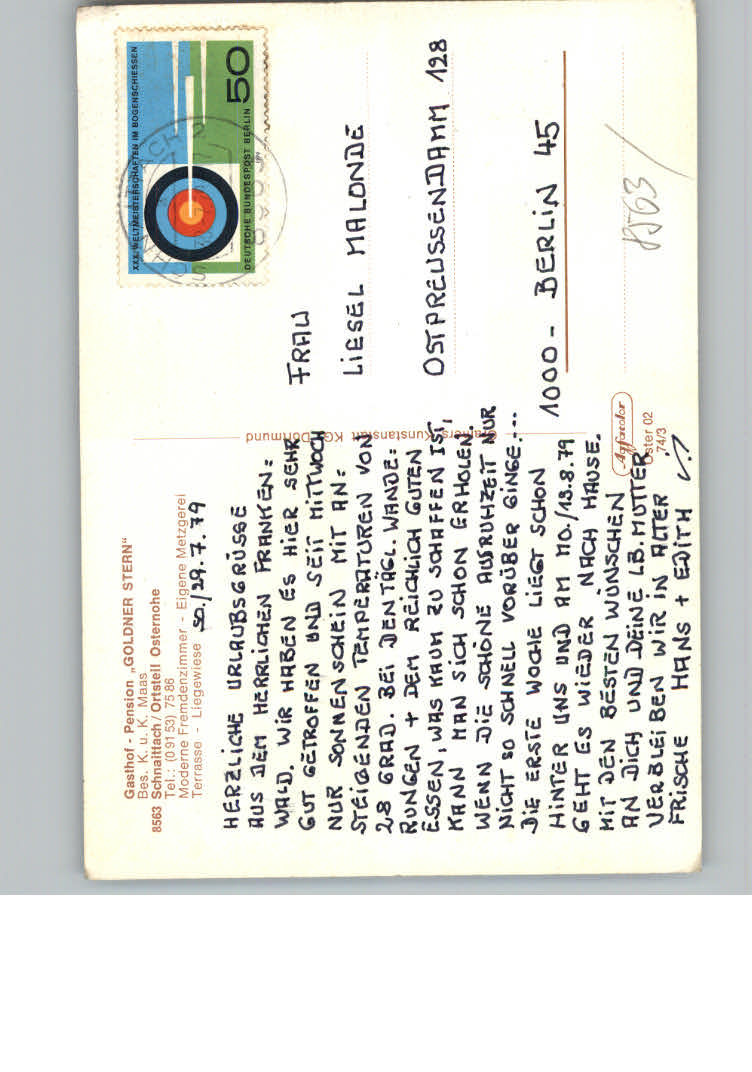 Gasthof - Pension „GOLDNER STERN“
Bes. K. u. K. Maas
8563 Schnaittach/Ortsteil Osternohe
Tel.: (0 91 53) 75 86
Moderne Fremdenzimmer - Eigene Metzgerei
Terrasse - Liegewiese
SO./29.7.79
HERZLICHE URLAUBSGRÜSSE
AUS DEM HERRLICHEN FRANKEN=
WALD. WIR HABEN ES HIER SEHR
GUT GETROFFEN UND SEIT MITTWOCH
NUR SONNENSCHEIN MIT AN=
STEIGENDEN TEMPERATUREN VON
28 GRAD. BEI DEN TÄGL. WANDE=
RUNGEN + DEM REICHLICH GUTEN
ESSEN, WAS KAUM ZU SCHAFFEN IST,
KANN MAN SICH SCHON ERHOLEN.
WENN DIE SCHÖNE AUSRUHZEIT NUR
NICHT SO SCHNELL VORÜBER GINGE....
DIE ERSTE WOCHE LIEGT SCHON
HINTER UNS UND AM MO./13.8.79
GEHT ES WIEDER NACH HAUSE.
MIT DEN BESTEN WÜNSCHEN
AN DICH UND DEINE LB. MUTTER
VERBLEIBEN WIR IN ALTER
FRISCHE HANS + EDITH
Cramers Kunstanstalt KG, Dortmund
XXX. WELTMEISTERSCHAFTEN IM BOGENSCHIESSEN
50
DEUTSCHE BUNDESPOST BERLIN
FRAU
LIESEL MALONDE
OSTPREUSSENDAMM 128
1000 - BERLIN 45
Agfacolor
Oster 02
74/3
8563